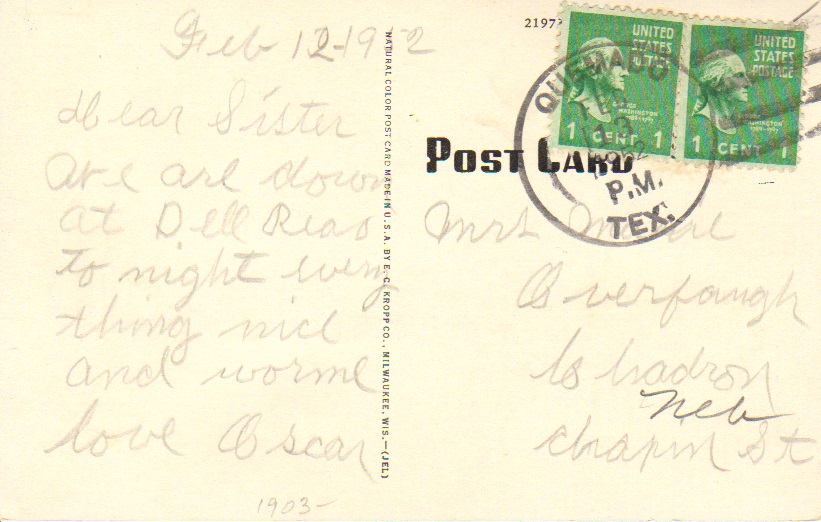 Feb 12-1952
Dear Sister
We are down
at Dell Reao
to night every
thing nice
and worme
love Oscar
1903-
NATURAL COLOR POST CARD MADE IN U.S.A. BY E. C. KROPP CO., MILWAUKEE, WIS.—(JEL)
2197
POST CARD
UNITED
STATES
POSTAGE
GEORGE
WASHINGTON
1 CENT 1
UNITED
STATES
POSTAGE
WASHINGTON
1 CENT 1
QUEMADO
P.M.
TEX.
Mrs
Overfaugh
Chadron
Neb
Chapin St